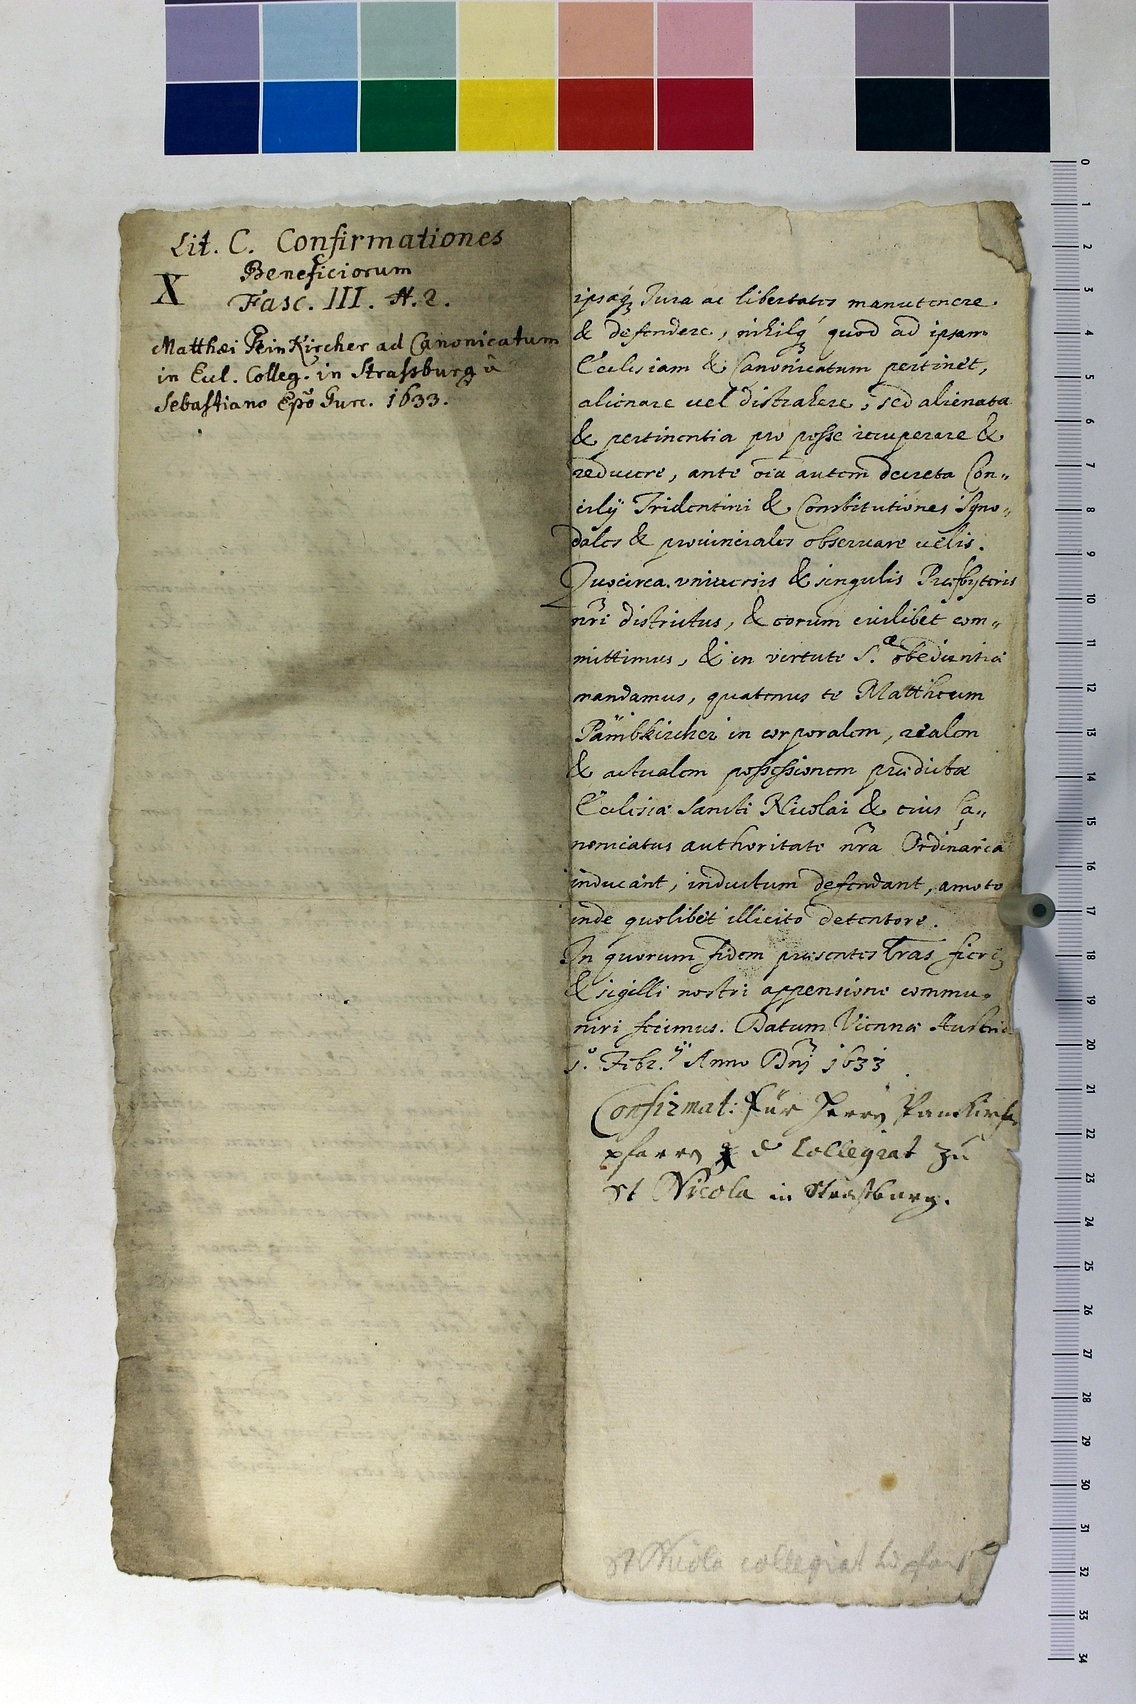 Lit. C. Confirmationes
Beneficiorum
X Fasc. III. N. 2.
Matthæi PeinKircher ad Canonicatum
in Eccl. Colleg. in Strasburg à
Sebastiano Epõ Gurc. 1633.
ipsaq₃ Jura ac libertates manutenere
& defendere, nihilq₃ quod ad ipsam
Ecclesiam & Canonicatum pertinet,
alienare vel distrahere, sed alienata
& pertinentia pro posse recuperare &
reducere, ante õia autem decreta Con„
cilÿ Tridentini & Constitutiones Syno„
dales & prouinciales obseruare uelis.
Quocirca vniuersis & singulis Presbyteris
nr̃i districtus, & eorum cuilibet com„
mittimus, & in virtute S.æ obedientiæ
mandamus, quatenus te Mattheum
Pämbkircher in corporalem, realem
& actualem possessionem prædictæ
Ecclesiæ Sancti Nicolai & eius Ca„
nonicatus authoritate nr̃a Ordinaria
inducant, inductum defendant, amoto
inde quolibet illicito detentore.
In quorum fidem præsentes Lr̃as fieri
& sigilli nostri appensione commu„
niri fecimus. Datum Viennæ Austriæ
Febr.ÿ Anno Dnj̃ 1633
Confirmat: Für Herrn
pfarrn collegiat zu
St Nicola in Strasburg.
St Nicola collegiat